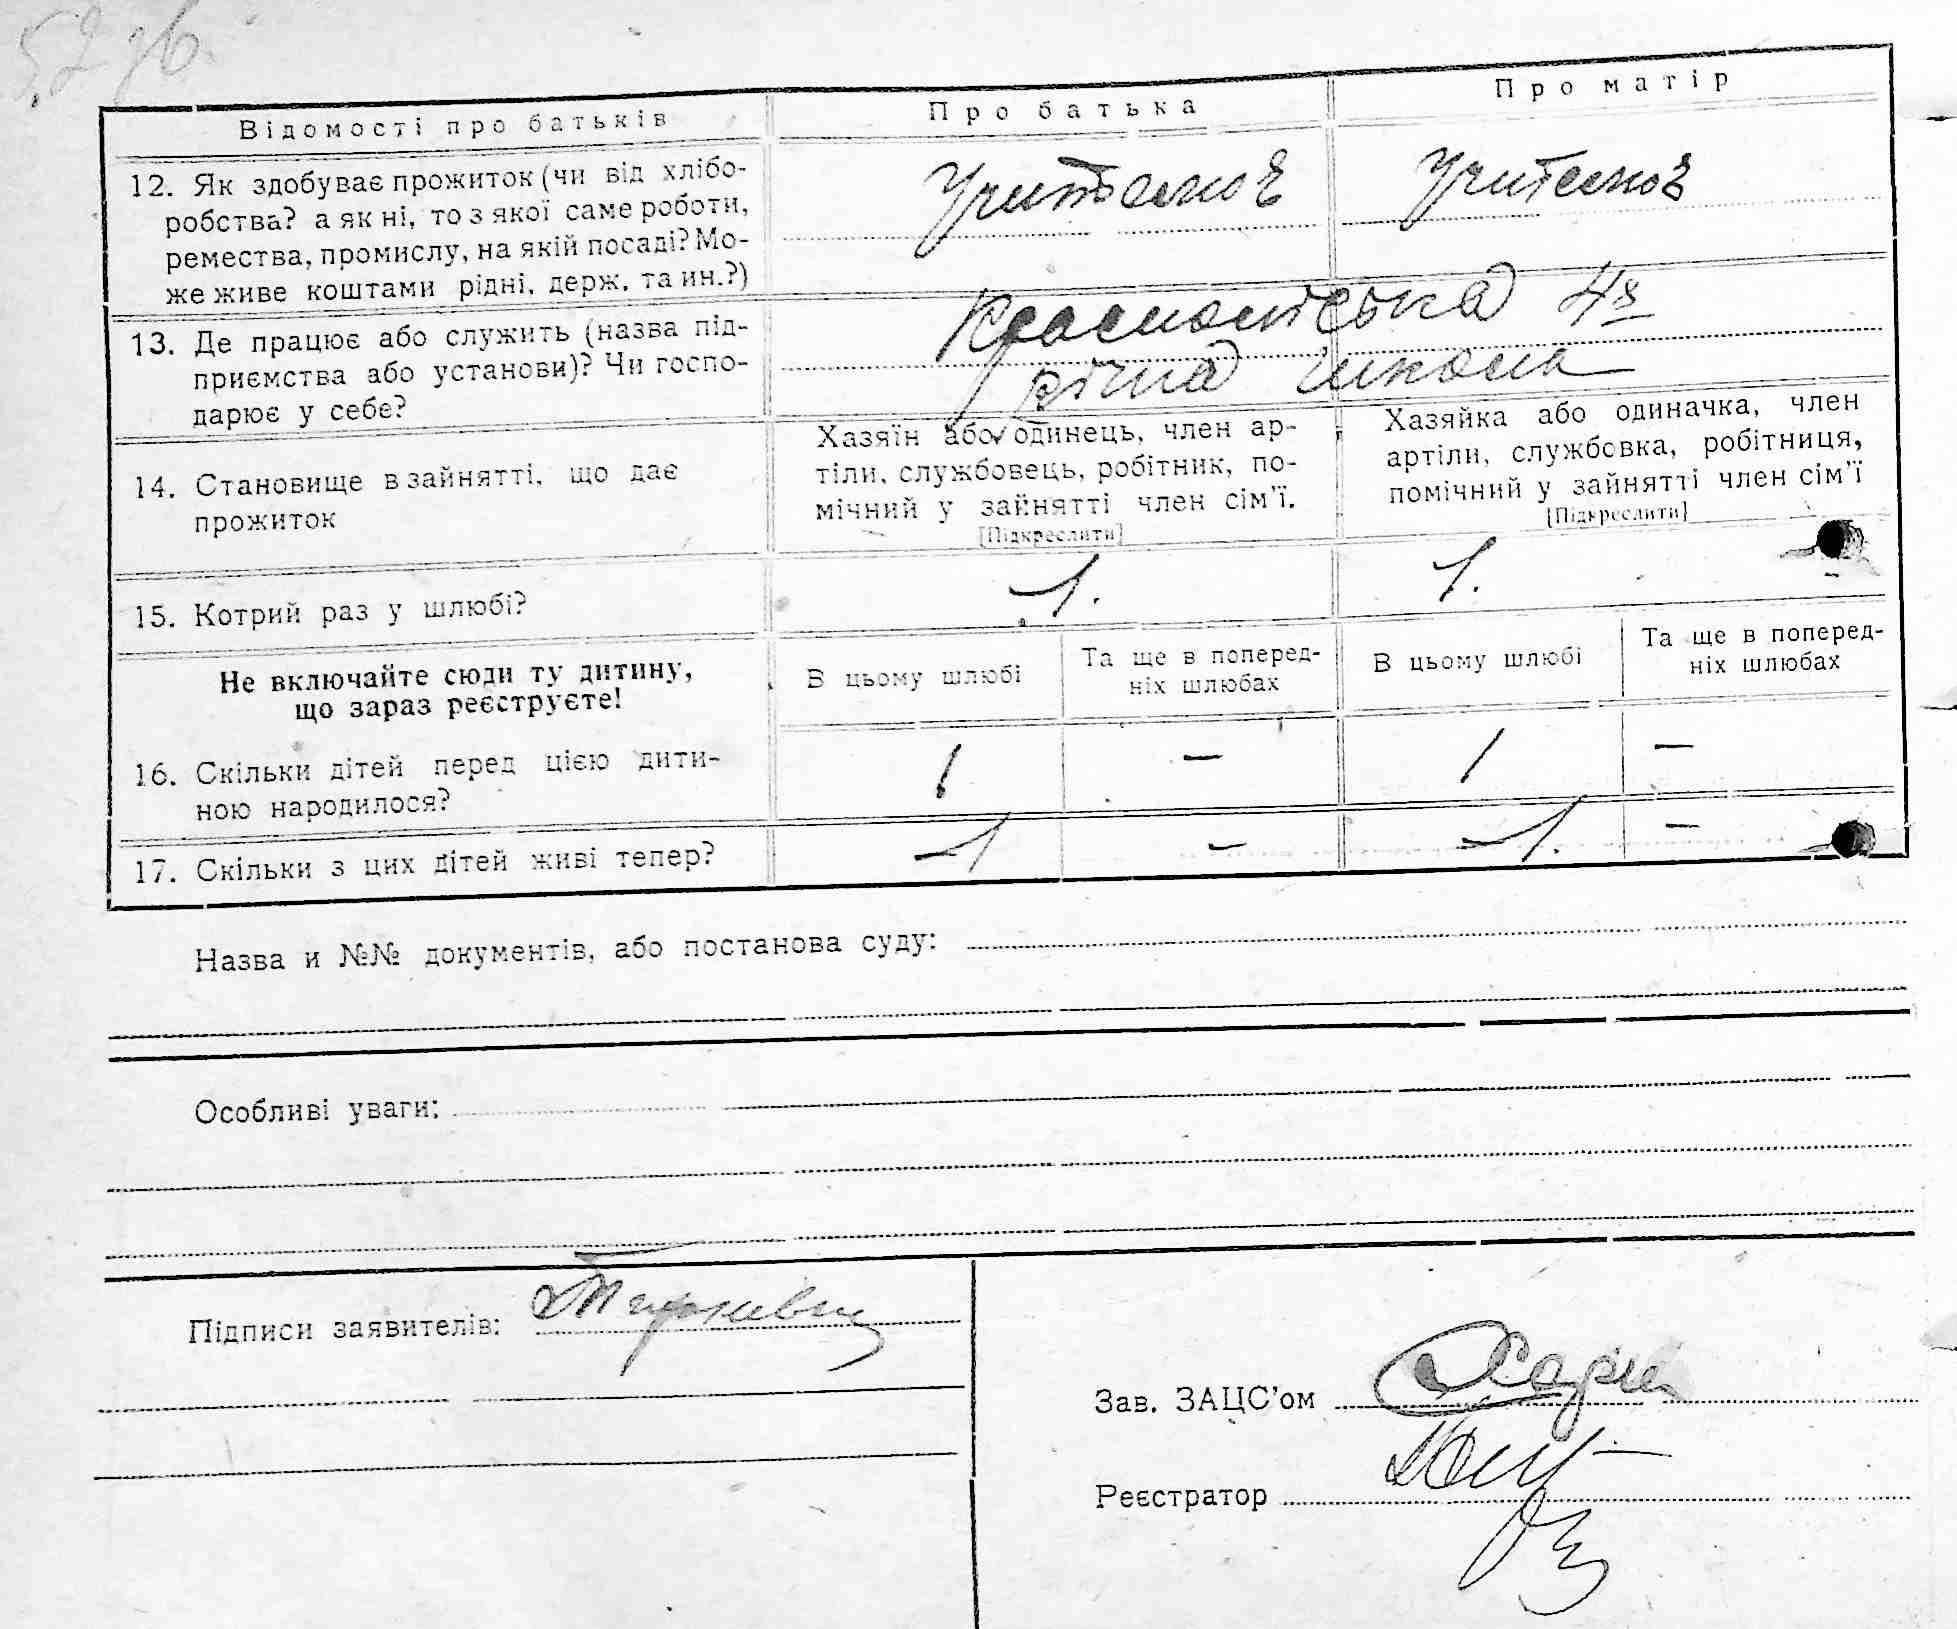 52 зв.
Відомості про батьків
Про батька
Про матір
12. Як здобуває прожиток (чи від хлібо-
робства? а як ні, то з якої саме роботи,
ремества, промислу, на якій посаді? Мо-
же живе коштами рідні, держ. та ин.?)
13. Де працює або служить (назва під-
приємства або установи)? Чи госпо-
дарює у себе?
4х
річна школа
14. Становище в зайнятті, що дає
прожиток
Хазяїн або одинець, член ар-
тіли, службовець, робітник, по-
мічний у зайнятті член сім'ї.
[Підкреслити]
Хазяйка або одиначка, член
артіли, службовка, робітниця,
помічний у зайнятті член сім'ї
[Підкреслити]
15. Котрий раз у шлюбі?
1.
1.
Не включайте сюди ту дитину,
що зараз реєструєте!
В цьому шлюбі
Та ще в поперед-
ніх шлюбах
В цьому шлюбі
Та ще в поперед-
ніх шлюбах
16. Скільки дітей перед цією дити-
ною народилося?
1
–
1
–
17. Скільки з цих дітей живі тепер?
1
–
1.
–
Назва и №№ документів, або постанова суду:
Особливі уваги:
Підписи заявителів:
Зав. ЗАЦС'ом
Реєстратор